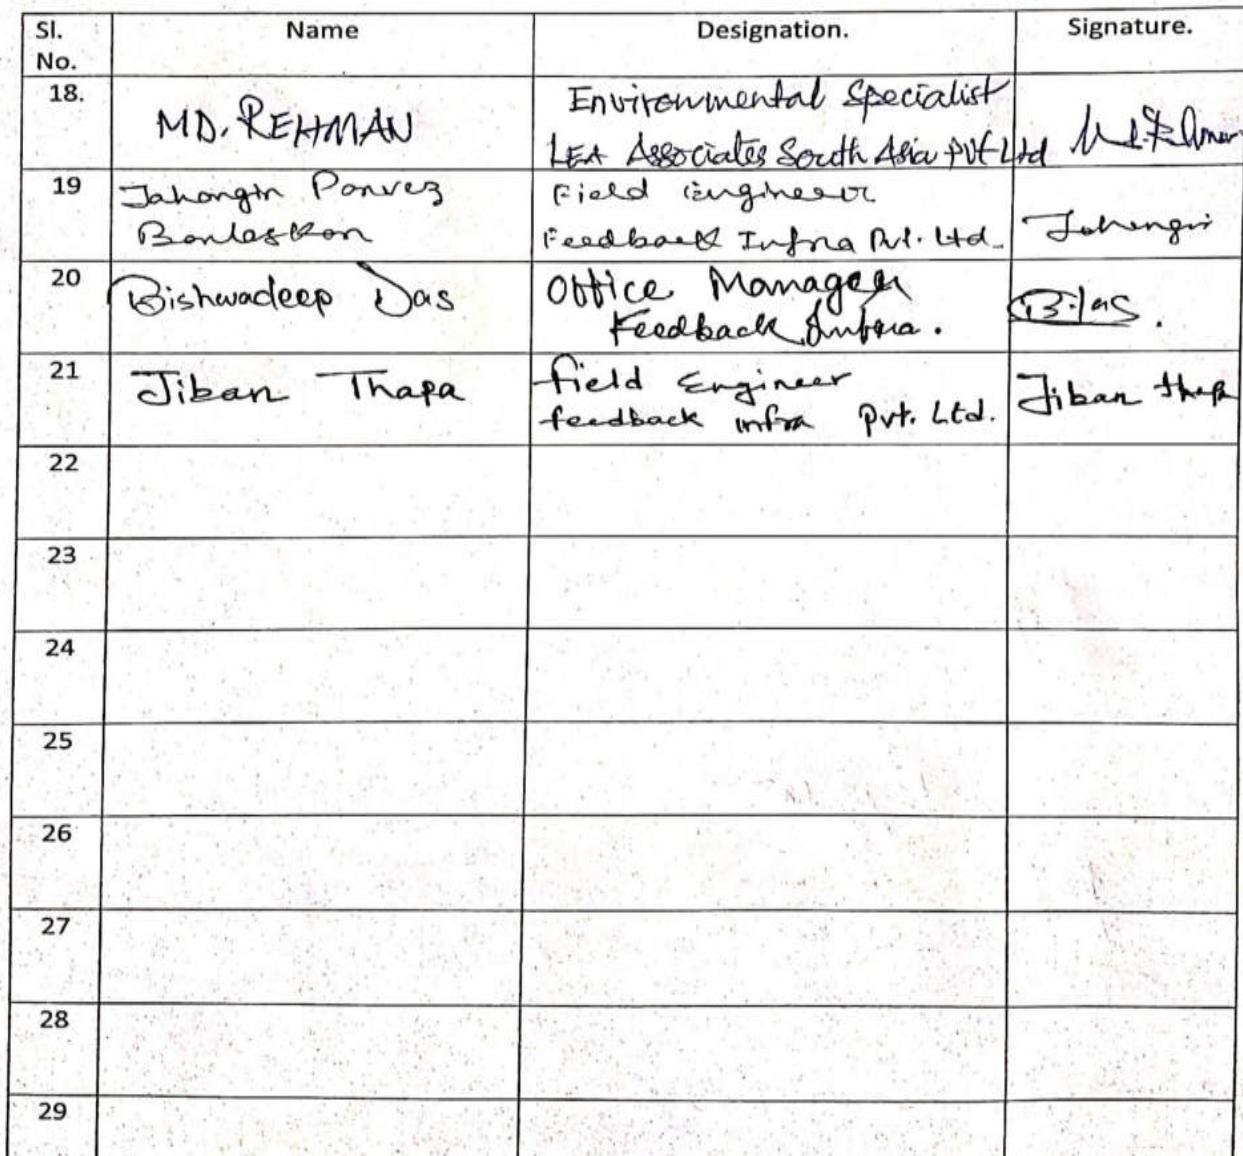 Sl. No. Name Designation. Signature.
18. MD. REHMAN Environmental Specialist
LEA Associates South Asia Pvt Ltd
19 Jahangir Parvez Field Engineer
Feedback Infra Pvt. Ltd. Jahangir
20 Bishwadeep Das Office Manager
Feedback Infra. B.Das.
21 Jiban Thapa field Engineer Jiban thapa
feedback infra Pvt. Ltd.
22
23
24
25
26
27
28
29